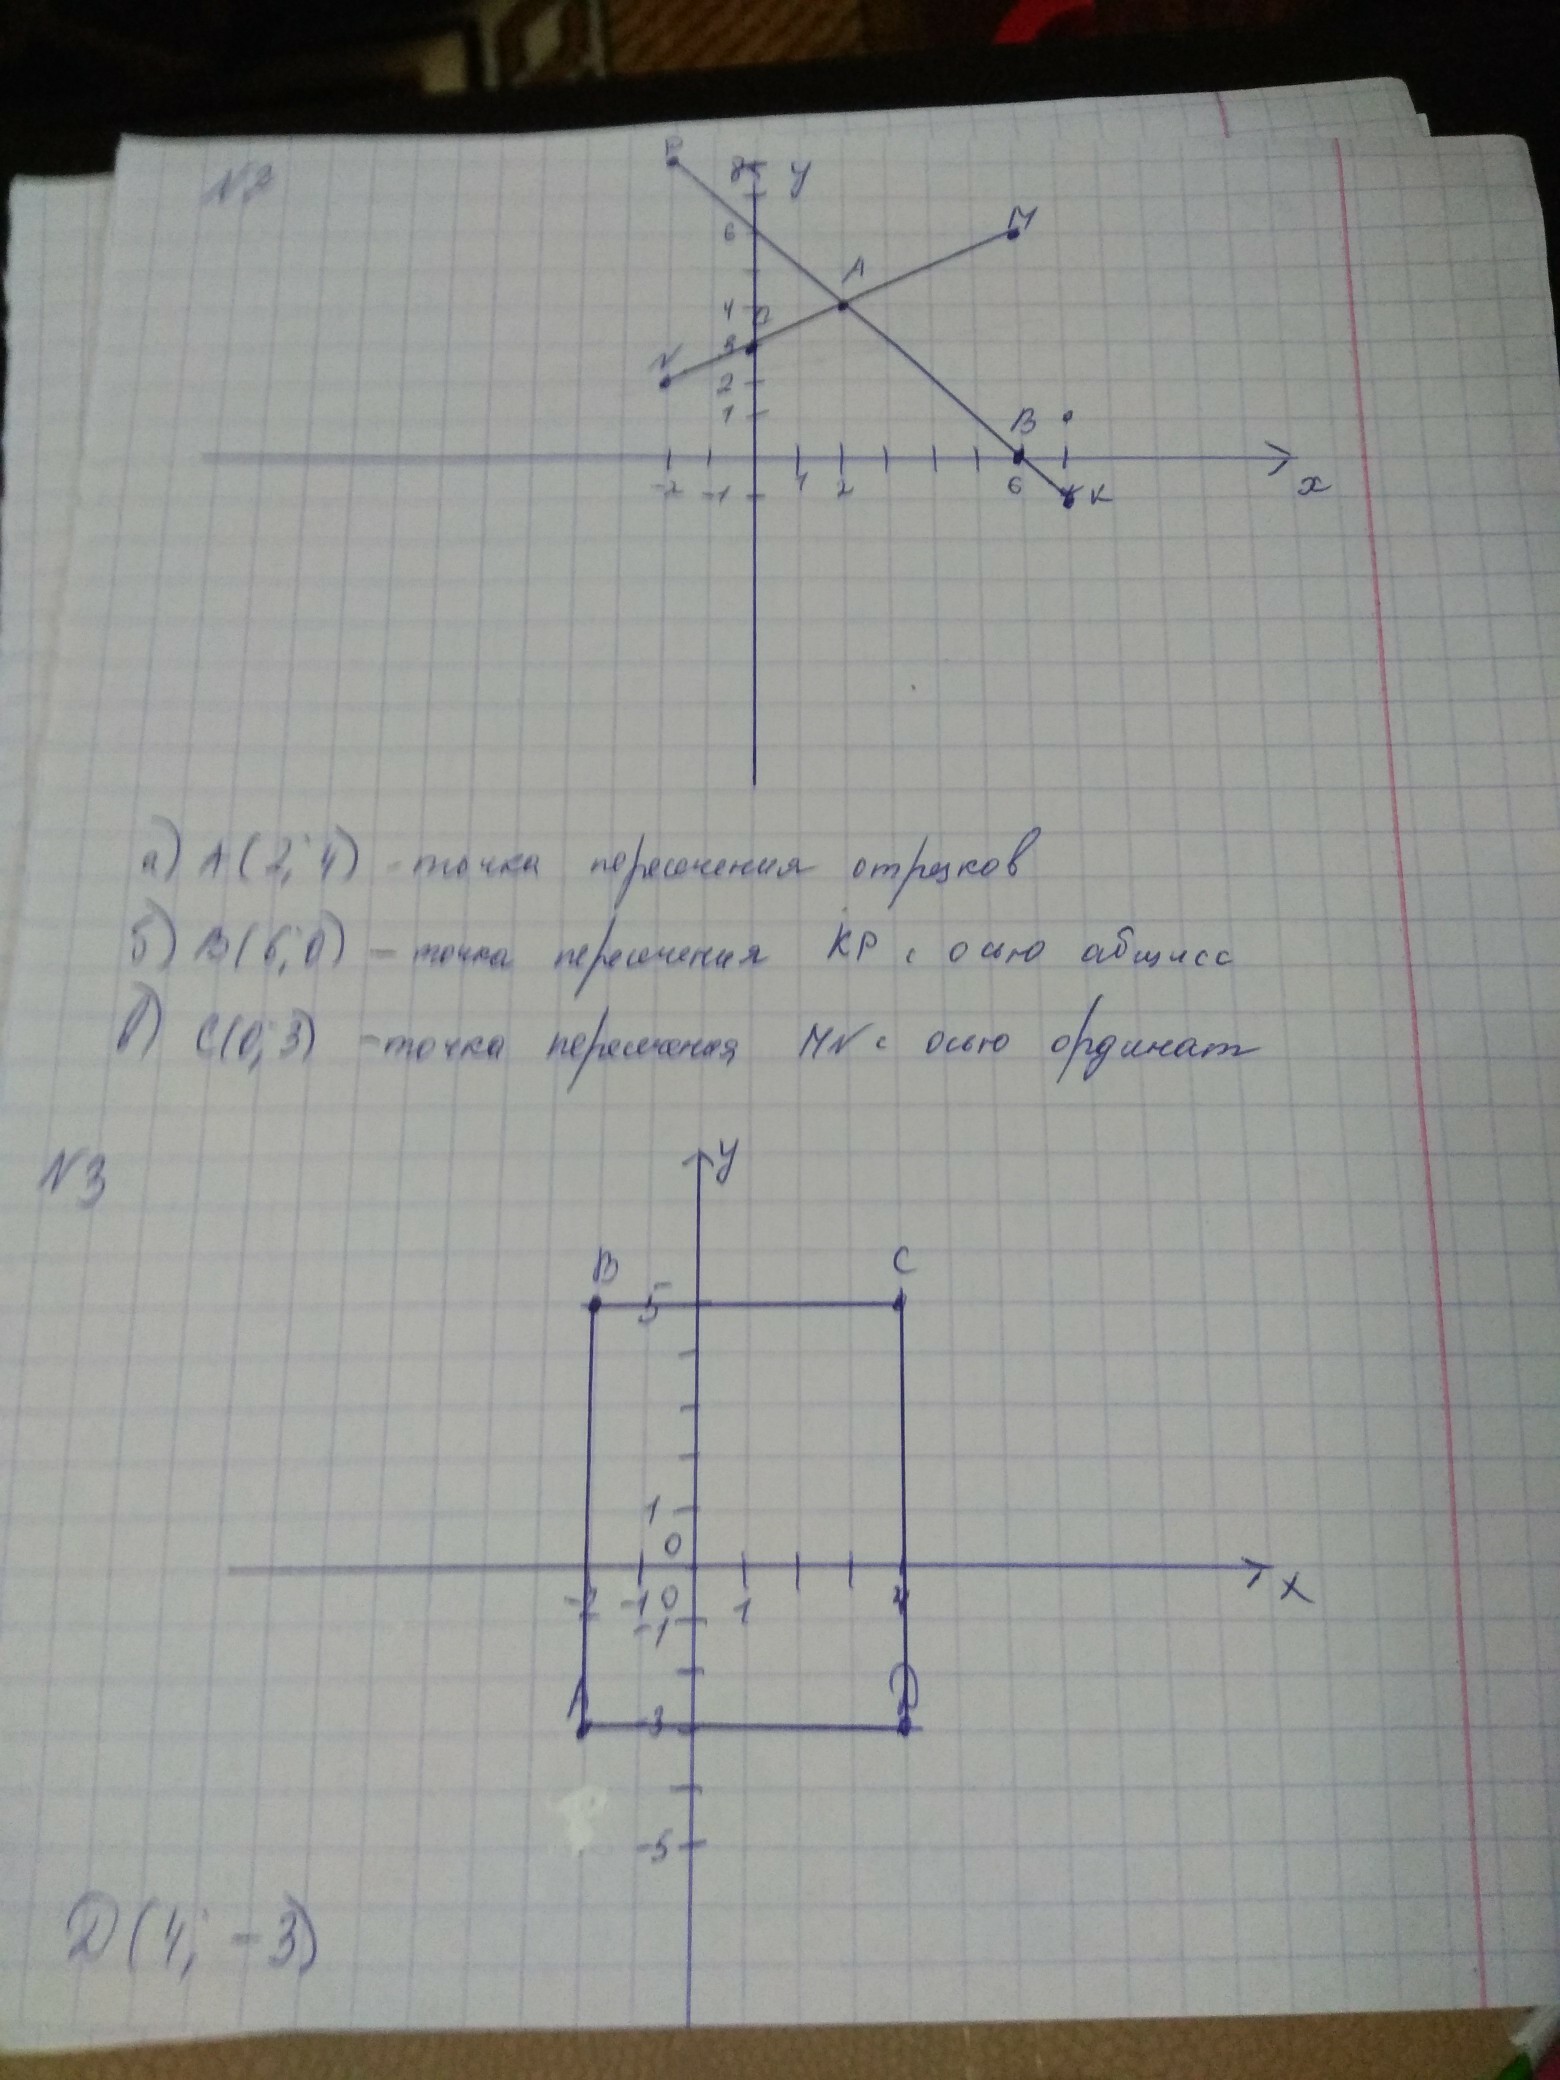 N2
P 8 y
6 M
A
4
3
N 2
1 B
-2 -1 -1 1 2 6 K x
а) A(2; 4) - точка пересечения отрезков
б) B(6; 0) - точка пересечения KP с осью абцисс
в) C(0; 3) - точка пересечения MN с осью ординат
N3
y
B C
5
1
0
-2 -1 0 1 4 x
-1
A D
-3
-5
D(4; -3)